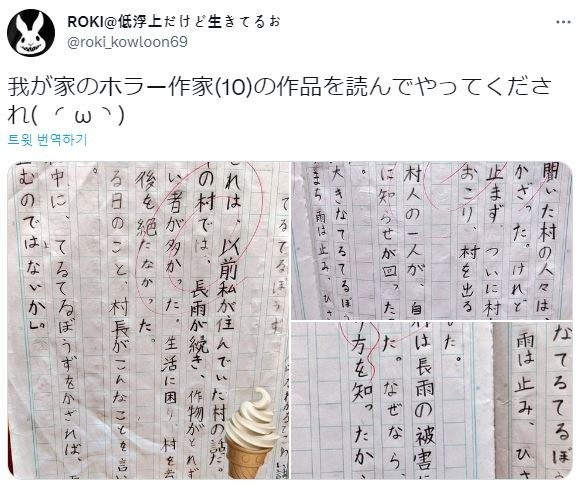 ROKI@低浮上だけど生きてるお
@roki_kowloon69
我が家のホラー作家(10)の作品を読んでやってくださ
れ( ◜ ω ◝ )
트윗 번역하기
てるてるぼうず
これは、以前私が住んでいた村の話だ。
の村では、長雨が続き、作物がとれず
い者が多かった。生活に困り、村を去
後を絶たなかった。
る日のこと、村長がこんなことを言い
。
中に、てるてるぼうずをかざれば、
止むのではないか」。
聞いた村の人々は、
かざった。けれど
止まず、ついに村
おこり、村を出る
村人の一人が、自
に知らせが回った
大きなてるてるぼう
まち雨は止み、ひさ
なてるてるぼ
雨は止み、ひさ
た。
は長雨の被害に
た。なぜなら、
方を知ったか